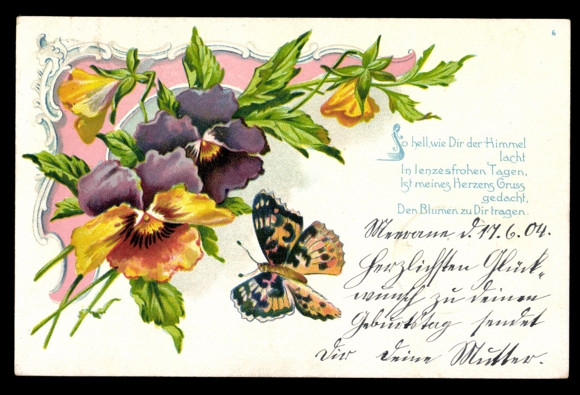 6
So hell, wie Dir der Himmel
lacht
In lenzesfrohen Tagen,
Ist meines Herzens Gruss
gedacht,
Den Blumen zu Dir tragen.
Meerane d. 17. 6. 04.
Herzlichsten Glück-
wunsch zu deinen
Geburtstag sendet
Dir deine Mutter.